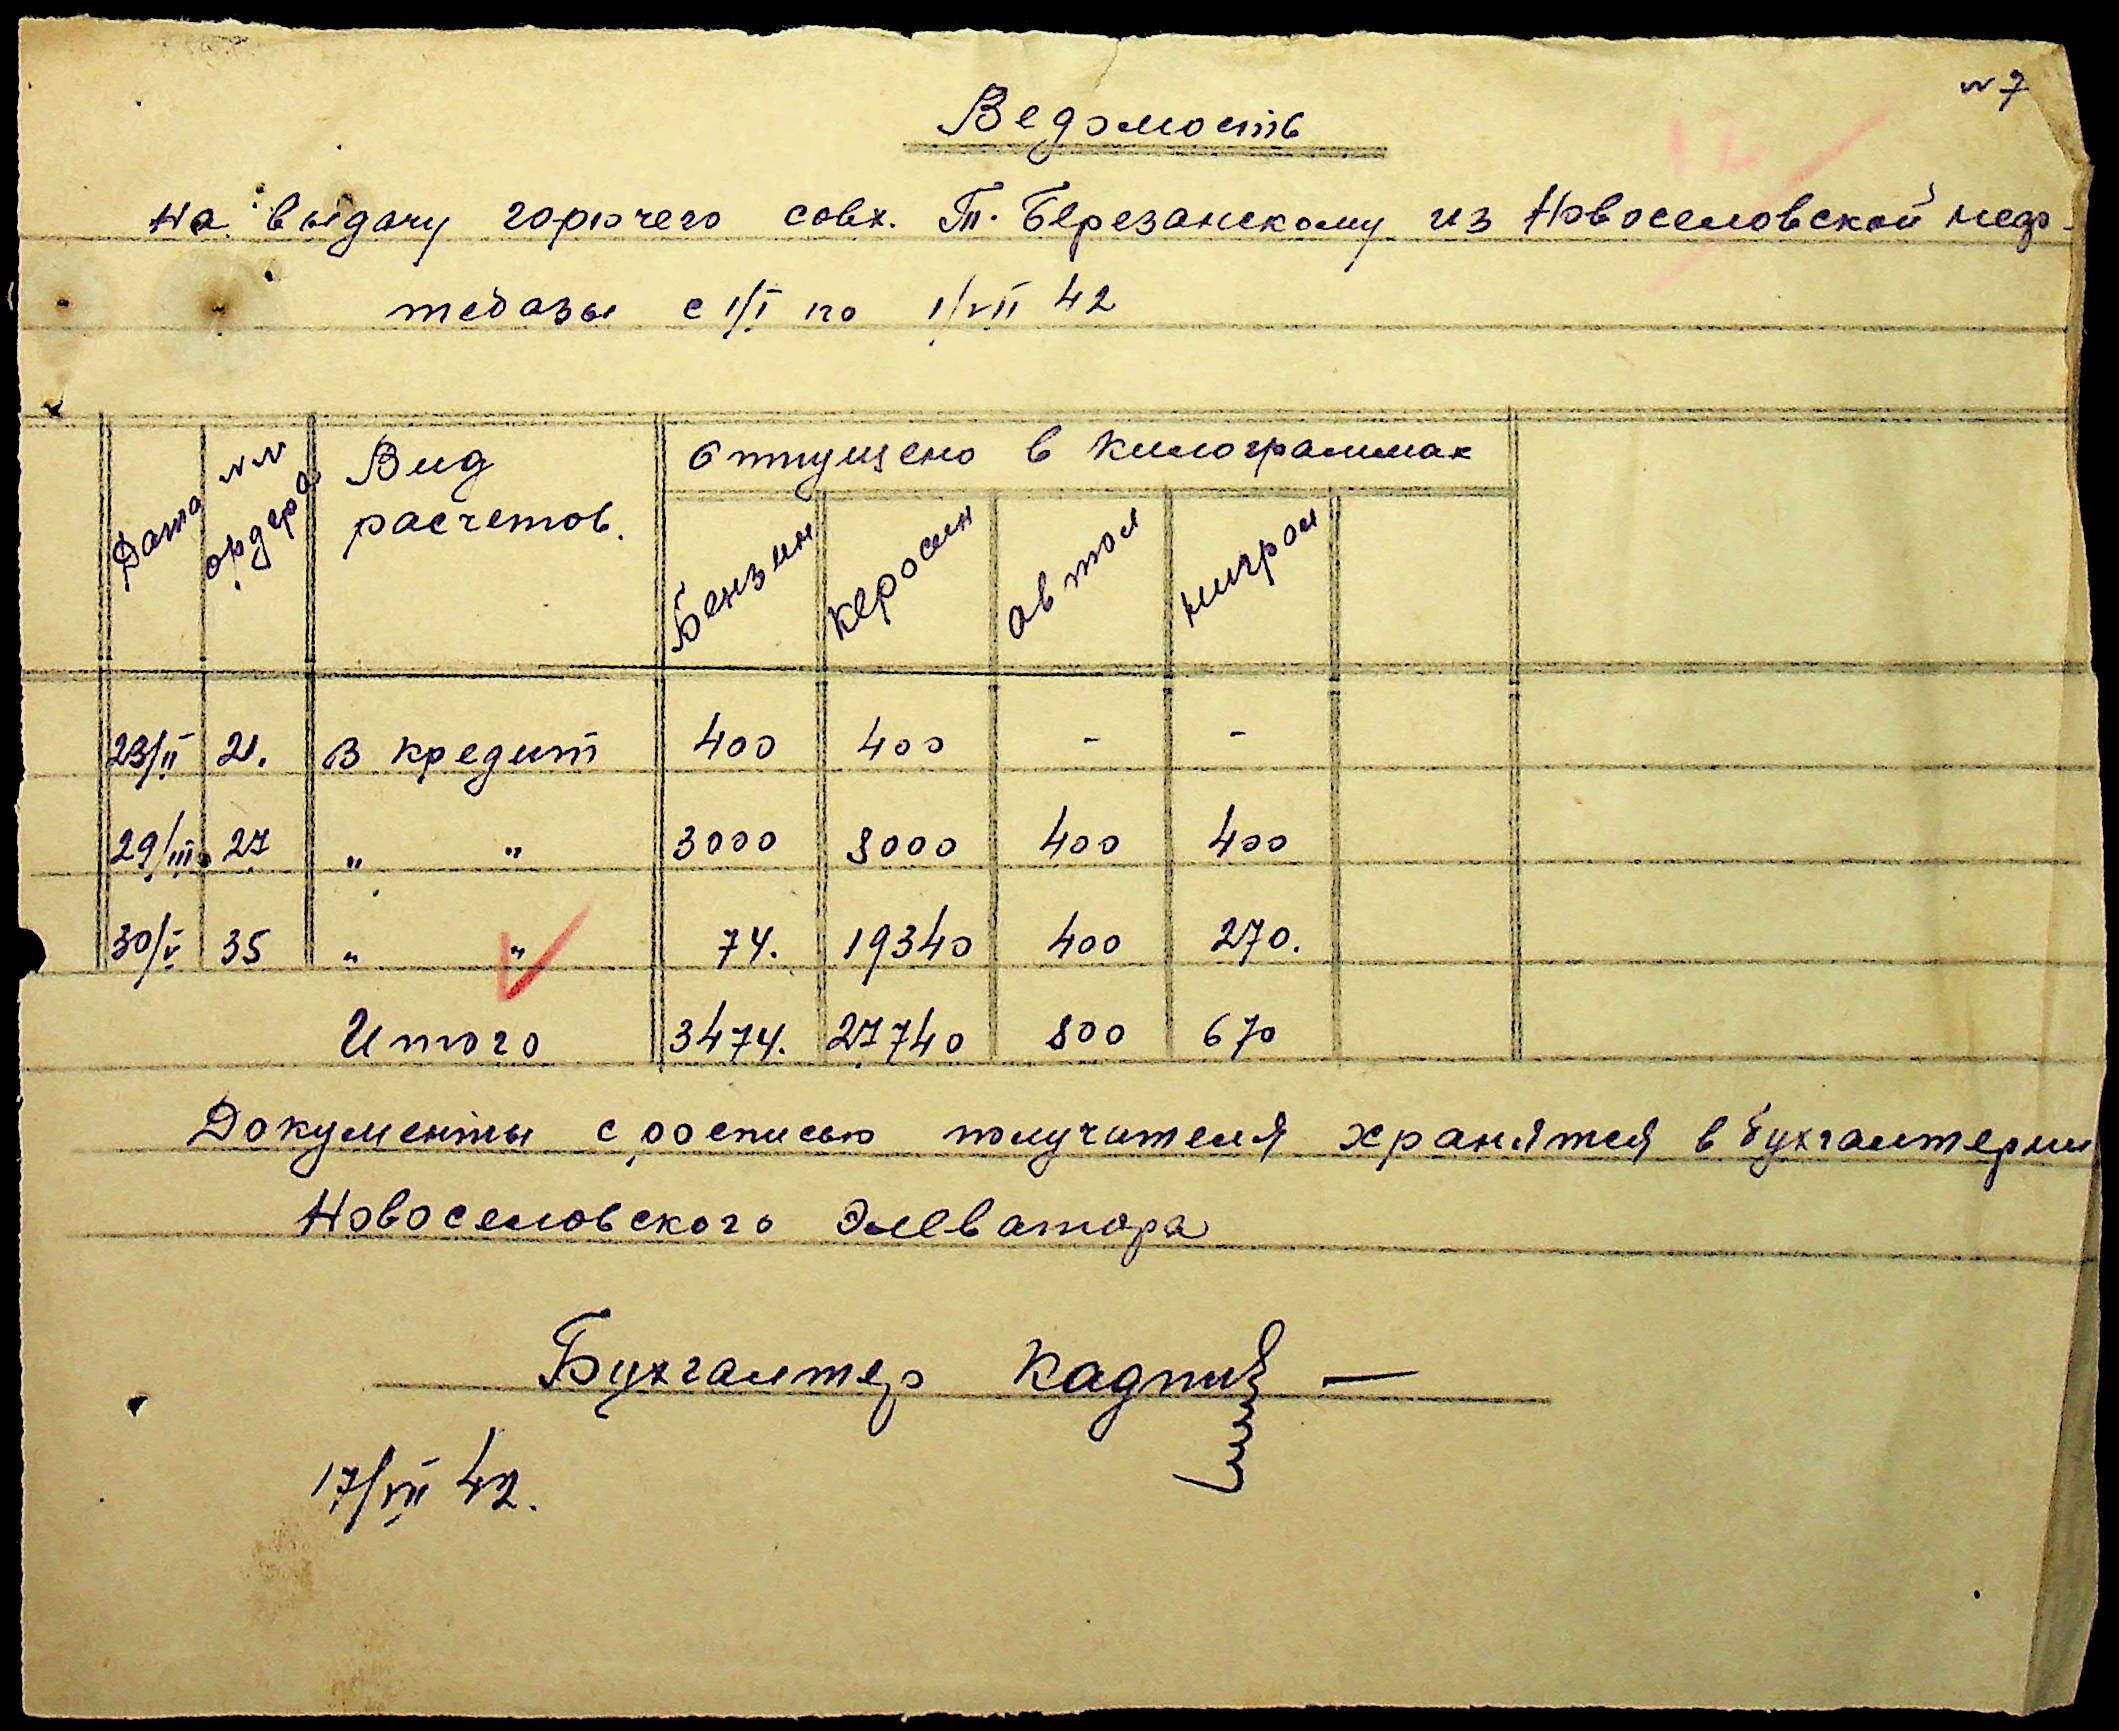 № 7
Ведомость
на выдачу горючего совх. Т. Березанскому из Новоселовской неф-
тебазы с 1/I по 1/VII 42
Дата
№№ ордера
Вид расчетов.
Отпущено в килограммах
Бензин керосин автол нигрол
23/II 21. В кредит 400 400 - -
29/III 27 " " 3000 8000 400 400
30/V 35 " " 74. 19340 400 270.
Итого 3474. 27740 800 670
Документы с росписью получателя хранятся в бухгалтерии
Новоселовского Элеватора
Бухгалтер
17/VII 42.